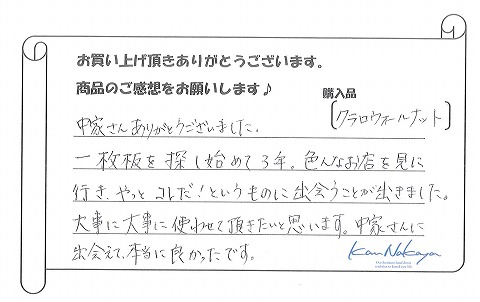 お買い上げ頂きありがとうございます。
商品のご感想をお願いします♪
購入品
(クラロウォールナット)
中家さんありがとうございました。
一枚板を探し始めて3年。色んなお店を見に
行き、やっとコレだ!というものに出会うことが出きました。
大事に大事に使わせて頂きたいと思います。中家さんに
出会えて、本当に良かったです。
Kan Nakaya